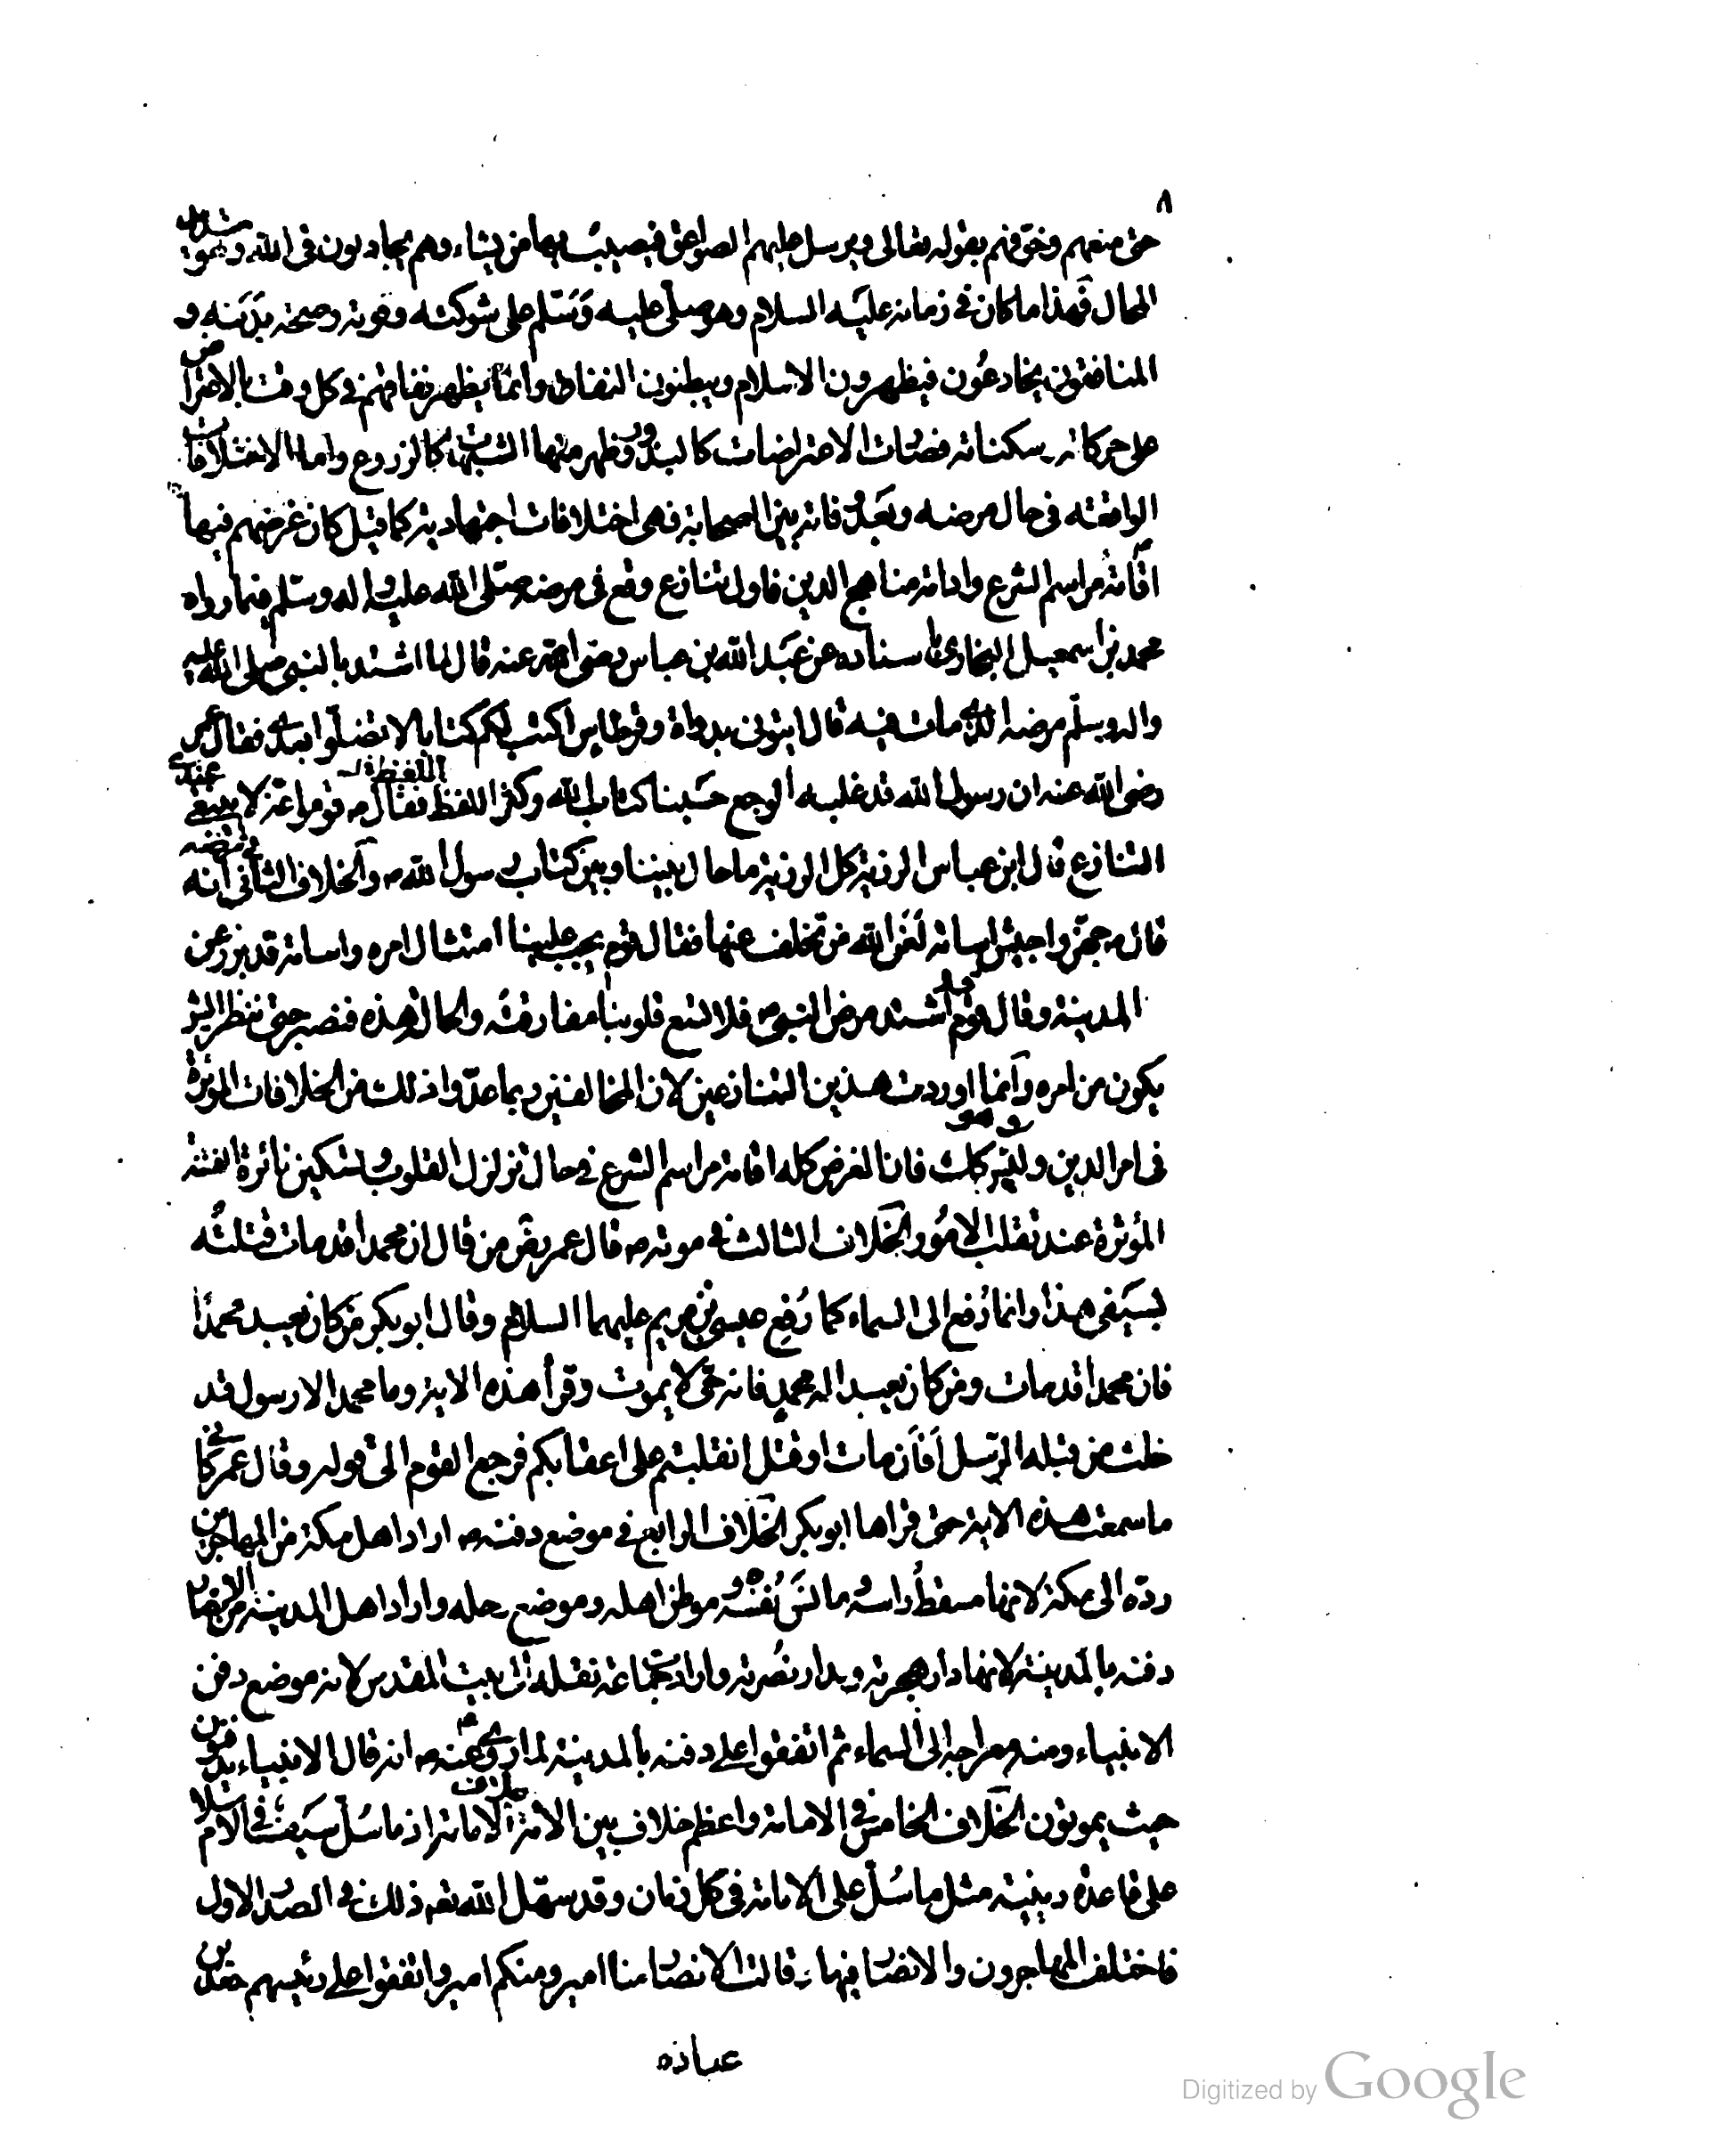 ٨
حتى منعهم وخوّفهم بقوله تعالى ويرسل عليهم الصواعق فيصيب بها من يشاء وهم يجادلون فى الله وهو شديد
المحال فهذا ما كان فى زمانه عليه السلام وهو صلى عليه وسلم على شوكته وقوته وصحة بدنه و
المنافقون يخادعون فيظهرون الاسلام ويبطنون النفاق وانما يظهر نفاقهم فى كل وقت بالاعتراض
على حركاته وسكناته فصارت الاعتراضات كالبذور وظهر منها الشبهات كالزروع واما الاختلافات
الواقعة فى حال مرضه وبعد وفاته بين الصحابة فهى اختلافات اجتهادية كما قيل كان غرضهم فيها
اقامة مراسم الشرع وادامة مناهج الدين فاول تنازع وقع فى مرضه صلى الله عليه واله وسلم فيما رواه
محمد بن اسمعيل البخارى باسناده عن عبد الله بن عباس رضى الله عنه قال لما اشتد بالنبى صلى الله عليه
واله وسلم مرضه الذى مات فيه قال ايتونى بدواة وقرطاس اكتب لكم كتابا لا تضلوا بعدى فقال عمر
رضى الله عنه ان رسول الله قد غلبه الوجع حسبنا كتاب الله وكثر اللفظ فقال ص قوموا عنى لا ينبغى عندى
التنازع قال ابن عباس الرزية كل الرزية ما حال بيننا وبين كتاب رسول الله ص والخلاف الثانى فى مرضه انه
قال ص جهزوا جيش اسامة لعن الله من تخلف عنها فقال قوم يجب علينا امتثال امره واسامة قد برز عن
المدينة وقال قوم قد اشتد مرض النبى ص فلا تسع قلوبنا مفارقته والحال هذه فنصبر حتى ننظر ايش
يكون من امره وانما اوردت هذين التنازعين لان المخالفين ربما عدوا ذلك من الخلافات الموثرة
فى امر الدين وهو ليس كذلك فان الغرض كله اقامة مراسم الشرع فى حال تزلزل القلوب وتسكين نائرة الفتنة
المؤثرة عند تقلب الامور الخلاف الثالث فى موته ص قال عمر رض من قال ان محمدا قد مات قتلته
بسيفى هذا وانما رفع الى السماء كما رفع عيسى بن مريم عليهما السلام وقال ابو بكر من كان يعبد محمدا
فان محمدا قد مات ومن كان يعبد اله محمد فانه حى لا يموت وقرأ هذه الاية وما محمد الا رسول قد
خلت من قبله الرسل أفان مات او قتل انقلبتم على اعقابكم فرجع القوم الى قوله وقال عمر كانى
ما سمعت هذه الاية حتى قراها ابو بكر الخلاف الرابع فى موضع دفنه ص اراد اهل مكة من المهاجرين
رده الى مكة لانها مسقط راسه ومانس نفسه وموطن اهله وموضع رحله واراد اهل المدينة من الانصار
دفنه بالمدينة لانها دار هجرته ومدار نصرته وارادت جماعة نقله الى بيت المقدس لانه موضع دفن
الانبياء ومنه معراجه الى السماء ثم اتفقوا على دفنه بالمدينة لما روى عنه ص انه قال الانبياء يدفنون
حيث يموتون الخلاف الخامس فى الامامة واعظم خلاف بين الامة خلاف الامامة اذ ما سل سيف فى الاسلام
على قاعدة دينية مثل ما سل على الامامة فى كل زمان وقد سهل الله تعه ذلك فى الصدر الاول
فاختلف المهاجرون والانصار فيها وقالت الانصار منا امير ومنكم امير واتفقوا على رئيسهم سعد بن
عباده
Digitized by Google